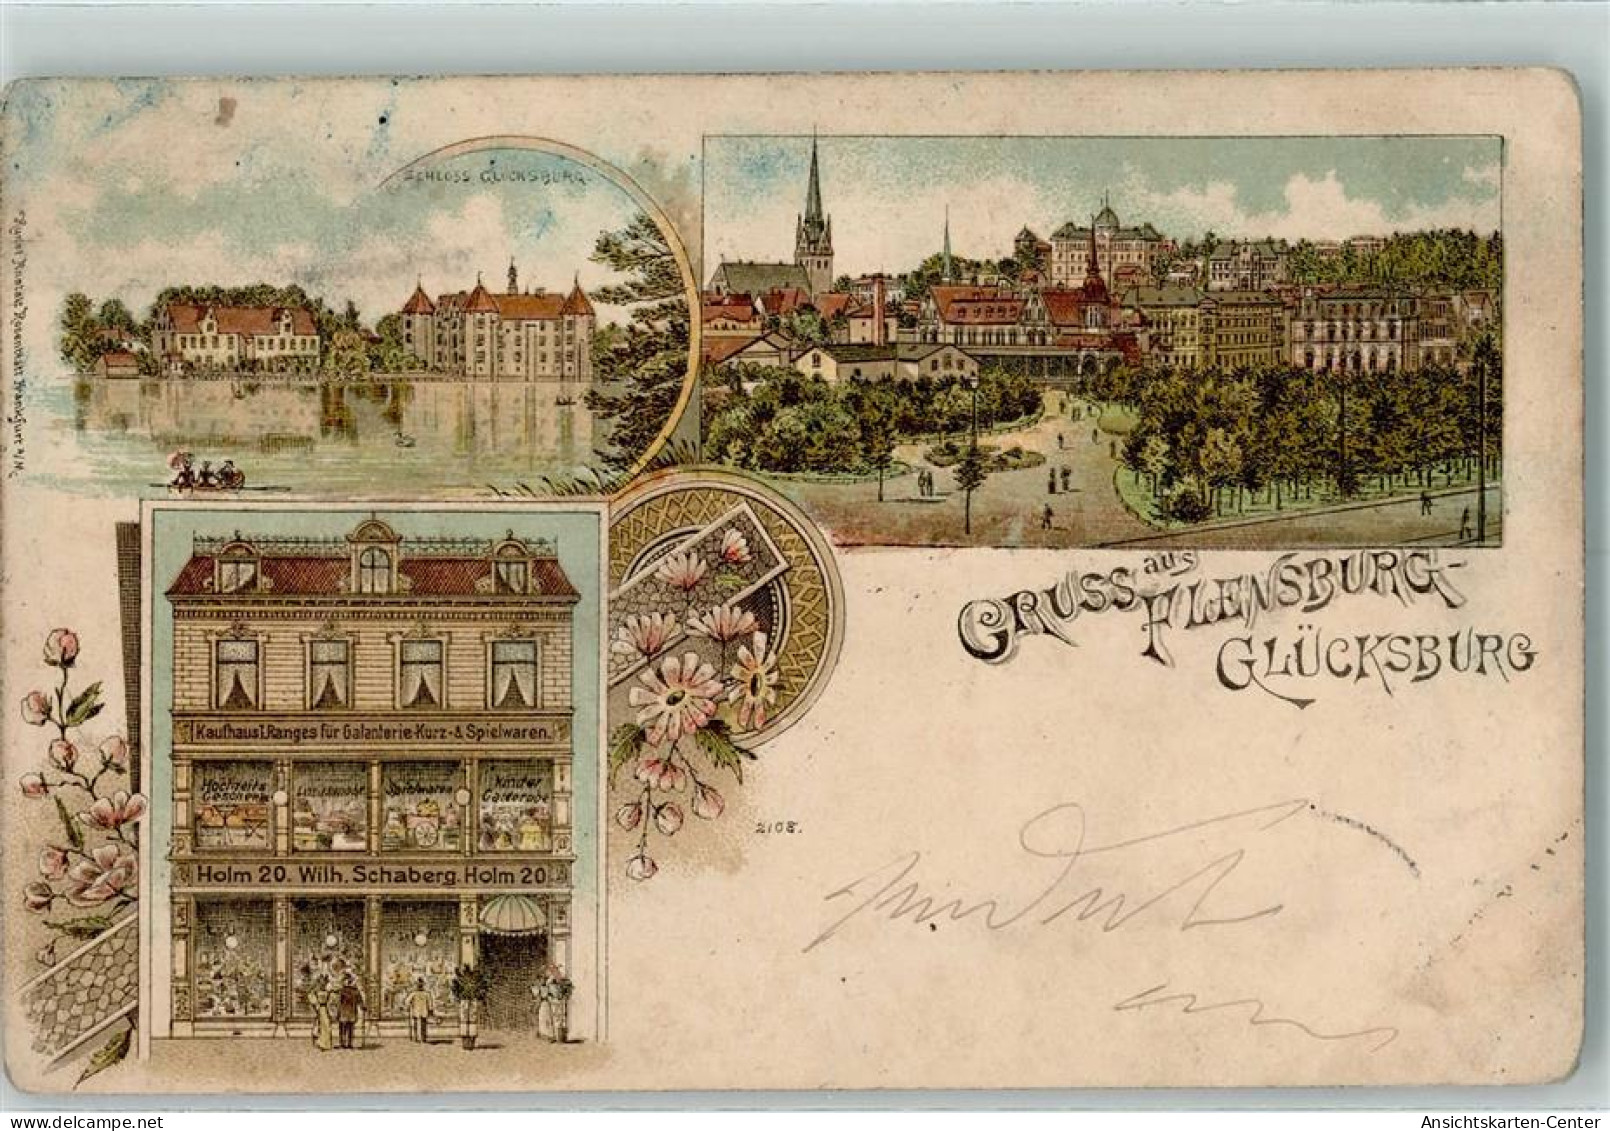 SCHLOSS GLÜCKSBURG.
GRUSS aus
FLENSBURG-
GLÜCKSBURG
Kaufhaus I. Ranges für Galanterie-Kurz- & Spielwaren.
Hochzeits Geschenke
Spielwaren
Kinder Garderobe
Holm 20. Wilh. Schaberg. Holm 20
2108.
Rosenblatt Frankfurt a/M.
Ansichtskarten-Center